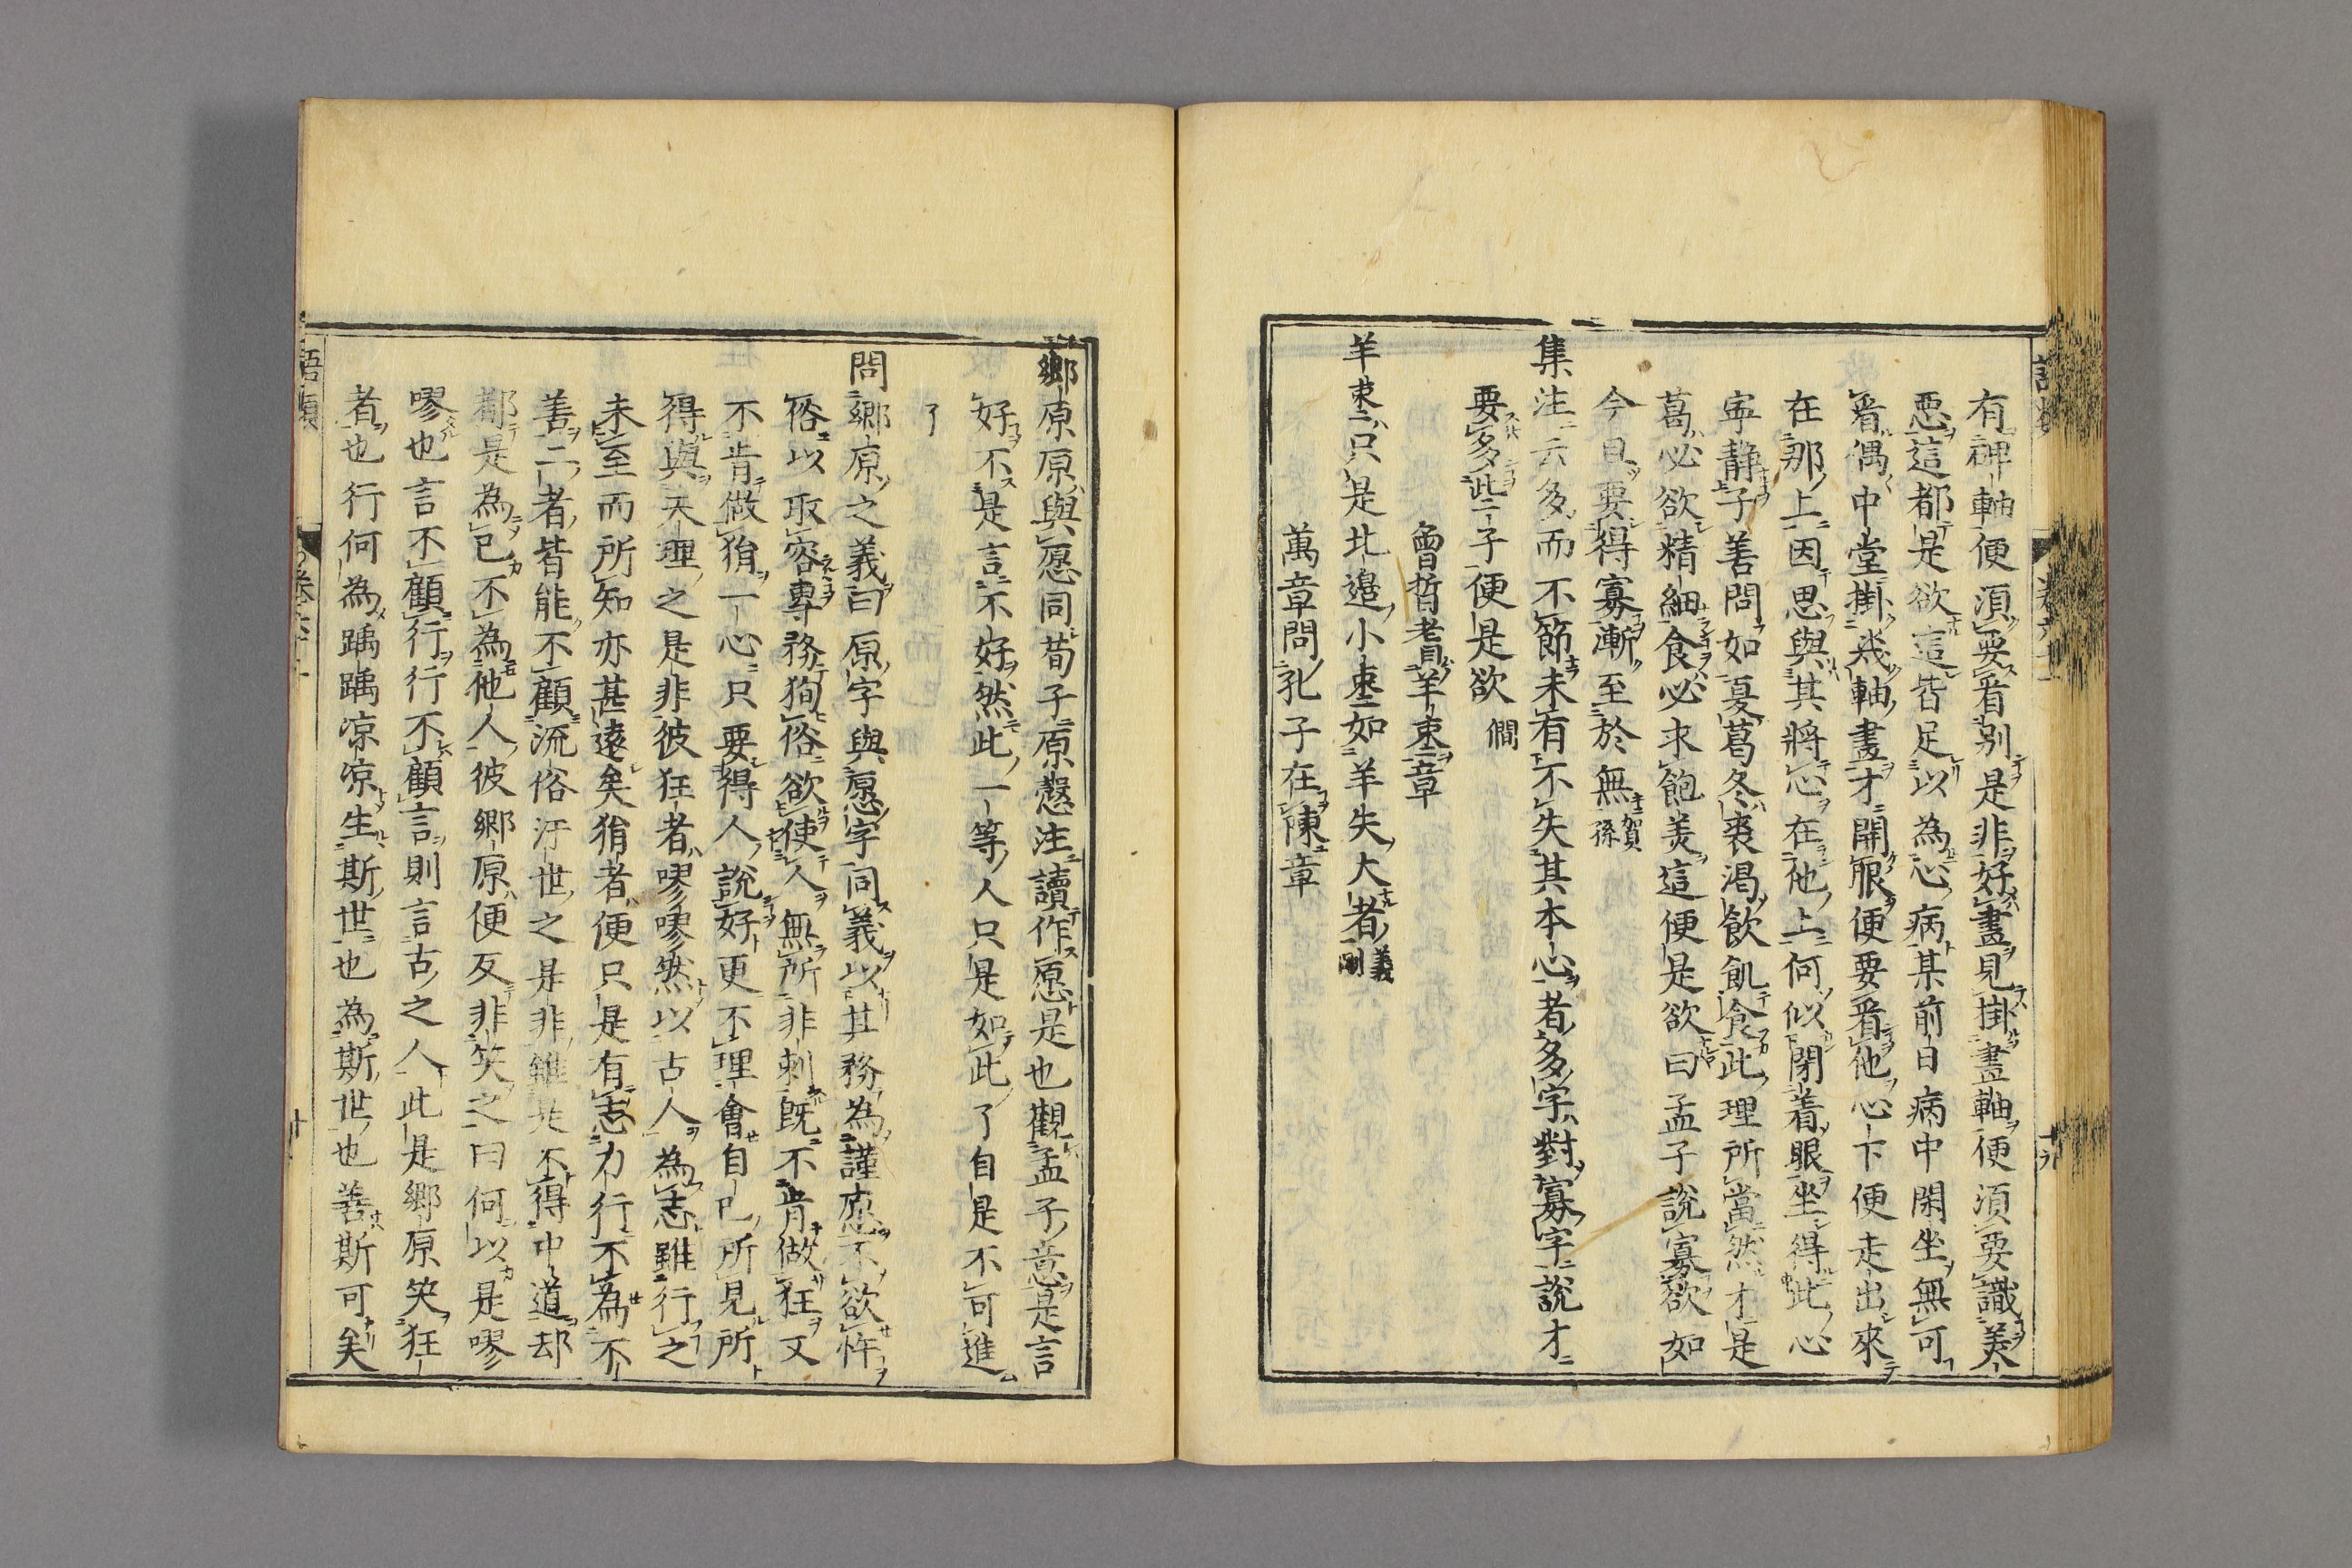 有一碑軸便須要看別是非好畫見掛畫軸便須要識美
惡這都是欲這皆足以為心病某前日病中閑坐無可
看偶中堂掛幾軸畫才開眼便要看他心下便走出來
在那上因思與其將心在他上何似閉着眼坐得此心
寧静子善問如夏葛冬裘渴飲飢食此理所當然才是
葛必欲精細食必求飽美這便是欲曰孟子說寡欲如
今且要得寡漸至於無賀孫
集注云多而不節未有不失其本心者多字對寡字說才
要多些子便是欲僩
曾晳耆羊棗章
羊棗只是北邊小棗如羊失大者義剛
萬章問孔子在陳章
鄉原原與愿同荀子原慤注讀作愿是也觀孟子意是言
好不是言不好然此一等人只是如此了自是不可進
了
問鄉原之義曰原字與愿字同義以其務為謹愿不欲忤
俗以取容專務狥俗欲使人無所非刺既不肯做狂又
不肯做狷一心只要得人說好更不理會自己所見所
得與天理之是非彼狂者嘐嘐然以古人為志雖行之
未至而所知亦甚遠矣狷者便只是有志力行不為不
善二者皆能不顧流俗汙世之是非雖是不得中道却
都是為己不為他人彼鄉原便反非笑之曰何以是嘐
嘐也言不顧行行不顧言則言古之人此是鄉原笑狂
者也行何為踽踽凉凉生斯世也為斯世也善斯可矣